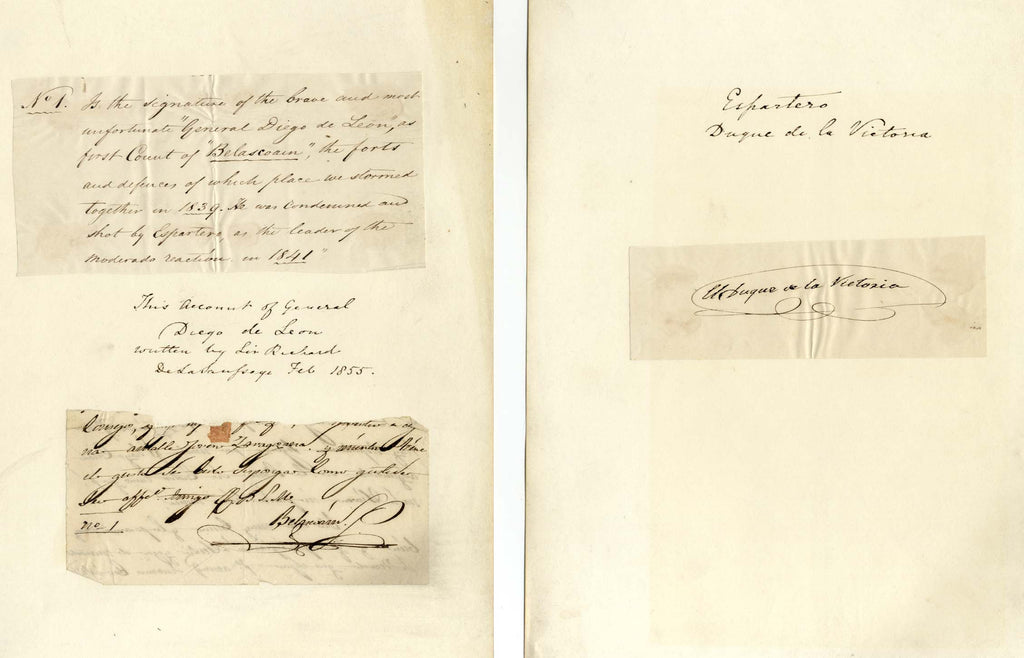 No 1. Is the signature of the brave and most
unfortunate "General Diego de Leon", as
first Count of "Belascoain", the forts
and defences of which place we stormed
together in 1839. He was condemned and
shot by Espartero, as the leader of the
Moderado reaction in 1841"
This account of General
Diego de Leon
written by Sir Richard
De Lacy Feb 1855.
amable Joven Zaragozana. y mientras
de gusto de
su affmo amigo Q. B. S. M.
Belascoain
no 1
Espartero
Duque de la Victoria
El Duque de la Victoria